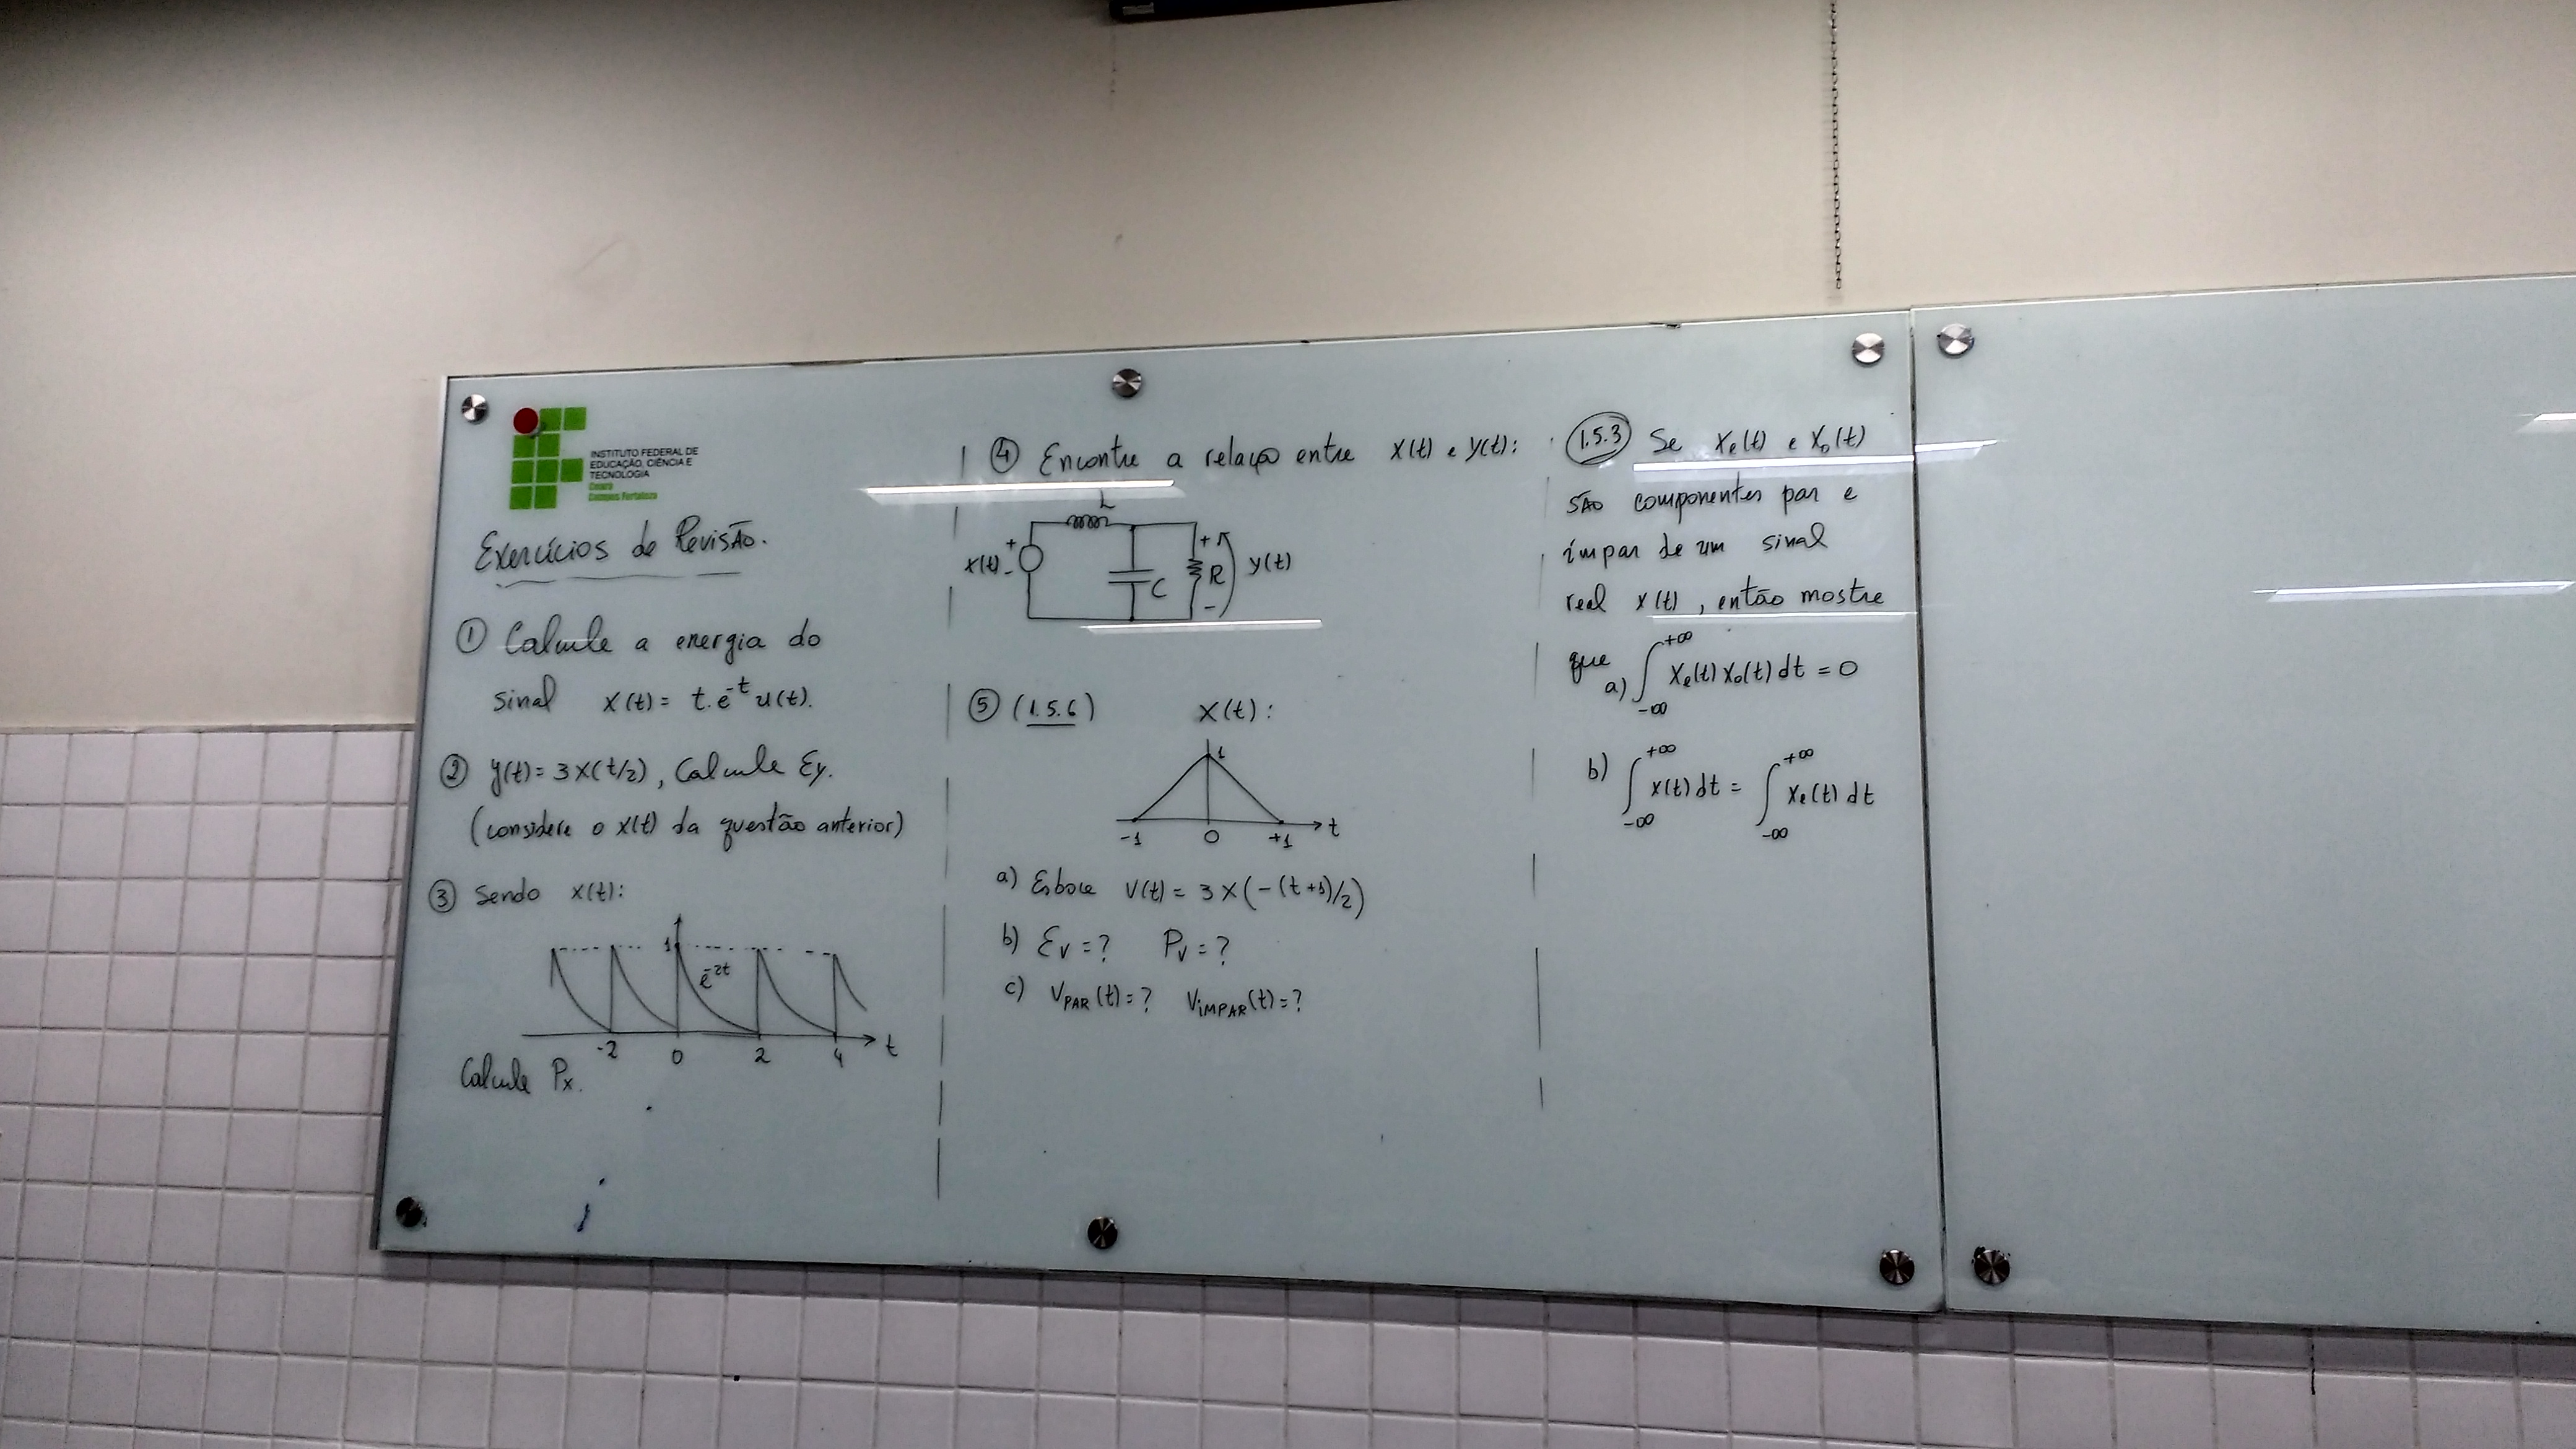 INSTITUTO FEDERAL DE
EDUCAÇÃO, CIÊNCIA E
TECNOLOGIA
Ceará
Campus Fortaleza
Exercícios de Revisão.
① Calcule a energia do
sinal x(t) = t.e^-t u(t).
② y(t) = 3x(t/2), Calcule Ey.
(considere o x(t) da questão anterior)
③ Sendo x(t):
1
e^-2t
-2 0 2 4 t
Calcule Px.
④ Encontre a relação entre x(t) e y(t):
L
x(t) + - C + R - y(t)
⑤ (1.5.6) x(t):
1
-1 0 +1 t
a) Esboce v(t) = 3x(-(t+1)/2)
b) Ev = ? Pv = ?
c) VPAR(t) = ? VÍMPAR(t) = ?
1.5.3 Se xe(t) e xo(t)
SÃO componentes par e
ímpar de um sinal
real x(t), então mostre
que a) ∫_-∞^+∞ xe(t) xo(t) dt = 0
b) ∫_-∞^+∞ x(t) dt = ∫_-∞^+∞ xe(t) dt